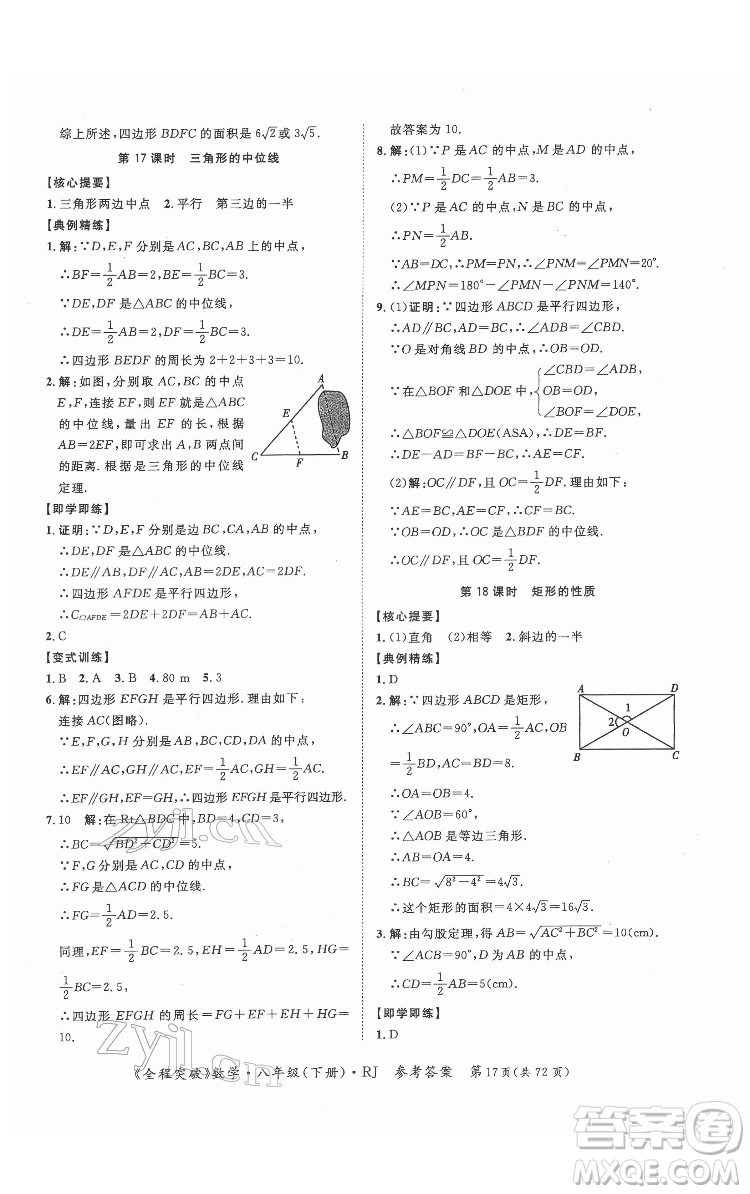 综上所述,四边形 BDFC 的面积是 6√2或 3√5.
第 17 课时　三角形的中位线
【核心提要】
1.三角形两边中点　2.平行　第三边的一半
【典例精练】
1.解:∵D,E,F 分别是AC,BC,AB上的中点,
∴BF=1/2AB=2,BE=1/2BC=3.
∵DE,DF 是△ABC的中位线,
∴DE=1/2AB=2,DF=1/2BC=3.
∴四边形 BEDF 的周长为 2+2+3+3=10.
2.解:如图,分别取 AC,BC 的中点
E,F,连接 EF,则 EF 就是△ABC
的中位线,量出 EF 的长,根据
AB=2EF,即可求出 A,B 两点间
的距离.根据是三角形的中位线
定理.
A
E
C
F
B
【即学即练】
1.证明:∵D,E,F 分别是边 BC,CA,AB 的中点,
∴DE,DF是△ABC 的中位线.
∴DE∥AB,DF∥AC.
∴四边形 AFDE 是平行四边形.
∴C▱AFDE=2DE+2DF=AB+AC.
2.C
【变式训练】
1.B　2.A　3.B　4.80 m　5.3
6.解:四边形 EFGH 是平行四边形.理由如下:
连接 AC(图略).
∵E,F,G,H 分别是 AB,BC,CD,DA 的中点,
∴EF∥AC,EF=1/2AC,GH∥AC,GH=1/2AC.
∴EF∥GH,EF=GH.∴四边形 EFGH 是平行四边形.
7.10　解:在 Rt△BDC 中,BD=4,CD=3,
∴BC=√(BD²+CD²)=5.
∵F,G 分别是 AC,CD 的中点,
∴FG 是△ACD 的中位线.
∴FG=1/2AD=2.5.
同理,EF=1/2BC=2.5,EH=1/2AD=2.5,GH=
1/2BC=2.5,
∴四边形 EFGH 的周长=FG+EF+EH+GH=
10.
故答案为 10.
8.解:(1)∵P 是 AC 的中点,M 是 AD 的中点,
∴PM=1/2DC=1/2AB=1/2×6=3.
(2)∵P 是 AC 的中点,N 是 BC 的中点,
∴PN=1/2AB.
∵AB=DC,∴PM=PN.∴∠PNM=∠PMN=20°.
∴∠MPN=180°-∠PMN-∠PNM=140°.
9.(1)证明:∵四边形 ABCD 是平行四边形,
∴AD∥BC,AD=BC.∴∠CBD=∠ADB.
∵O 是对角线 BD 的中点,∴OB=OD.
∵在△BOF 和△DOE 中,{∠CBD=∠ADB, OB=OD, ∠BOF=∠DOE,
∴△BOF≌△DOE(ASA).∴BF=DE.
∴AD-DE=BC-BF.∴AE=CF.
(2)解:OC∥DF,且 OC=1/2DF.理由如下:
∵AE=BC,AE=CF,∴CF=BC.
∵OB=OD,∴OC 是△BDF 的中位线.
∴OC∥DF,且 OC=1/2DF.
第 18 课时　矩形的性质
【核心提要】
1.(1)直角　(2)相等　2.斜边的一半
【典例精练】
1.D
2.解:∵四边形 ABCD 是矩形,
∴∠ABC=90°,OA=1/2AC,OB
=1/2BD,AC=BD=8.
∴OA=OB=4.
∵∠AOB=60°,
∴△AOB 是等边三角形.
∴AB=OA=4.
∴BC=√(8²-4²)=4√3.
∴这个矩形的面积=4×4√3=16√3.
A
D
1
2
O
B
C
3.解:由勾股定理,得 AB=√(AC²+BC²)=10(cm).
∵∠ACB=90°,D 为 AB 的中点,
∴CD=1/2AB=5(cm)
【即学即练】
1.D
《全程突破》数学·八年级(下册)·RJ　参考答案　第 17 页(共 72 页)
zyjl.cn
zyjl.cn
答案圈
MXQE.COM